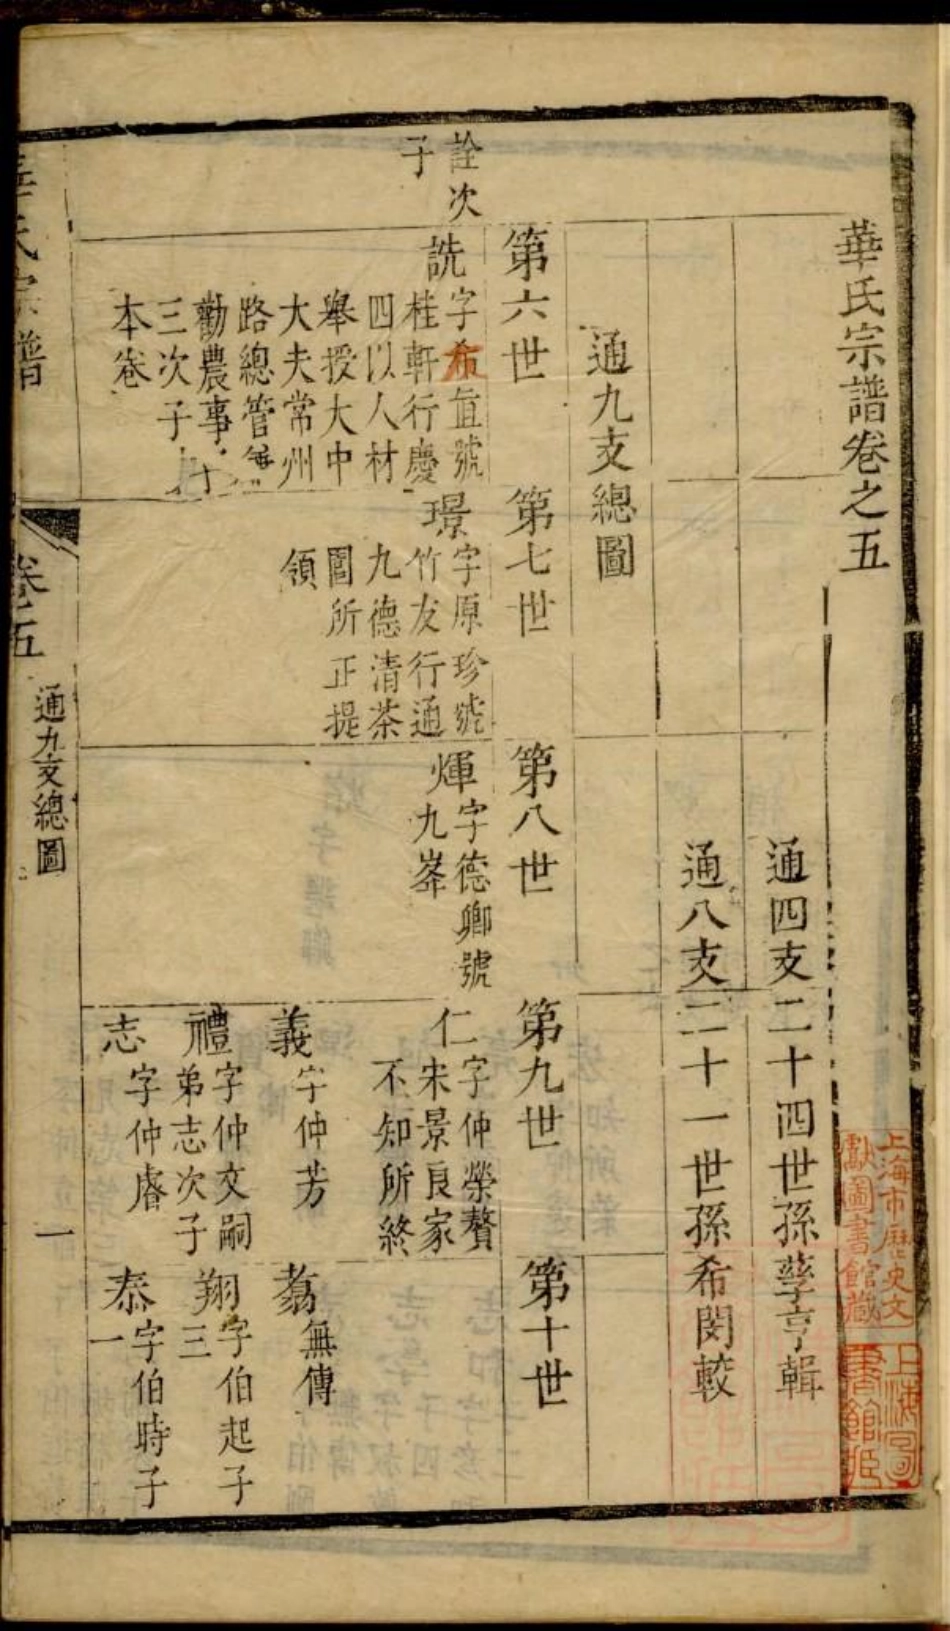 華氏宗譜卷之五
通四支二十四世孫孳亨輯
通八支二十一世孫希閔較
通九支總圖
第六世
第七世
第八世
第九世
第十世
詮次
子
詵字希直號
桂軒行慶
四以人材
舉授大中
大夫常州
路總管兼
勸農事子
三次子
本卷
璟字原珍號
竹友行通
九德清茶
園所正提
領
煇字德卿號
九峯
仁字仲榮贅
宋景良家
不知所終
義字仲芳
翥無傳
禮字仲文嗣
弟志次子
翔字伯起子
三
志字仲庸
泰字伯時子
一
華氏宗譜
卷五
通九支總圖
一
上海市歷史文
獻圖書館藏